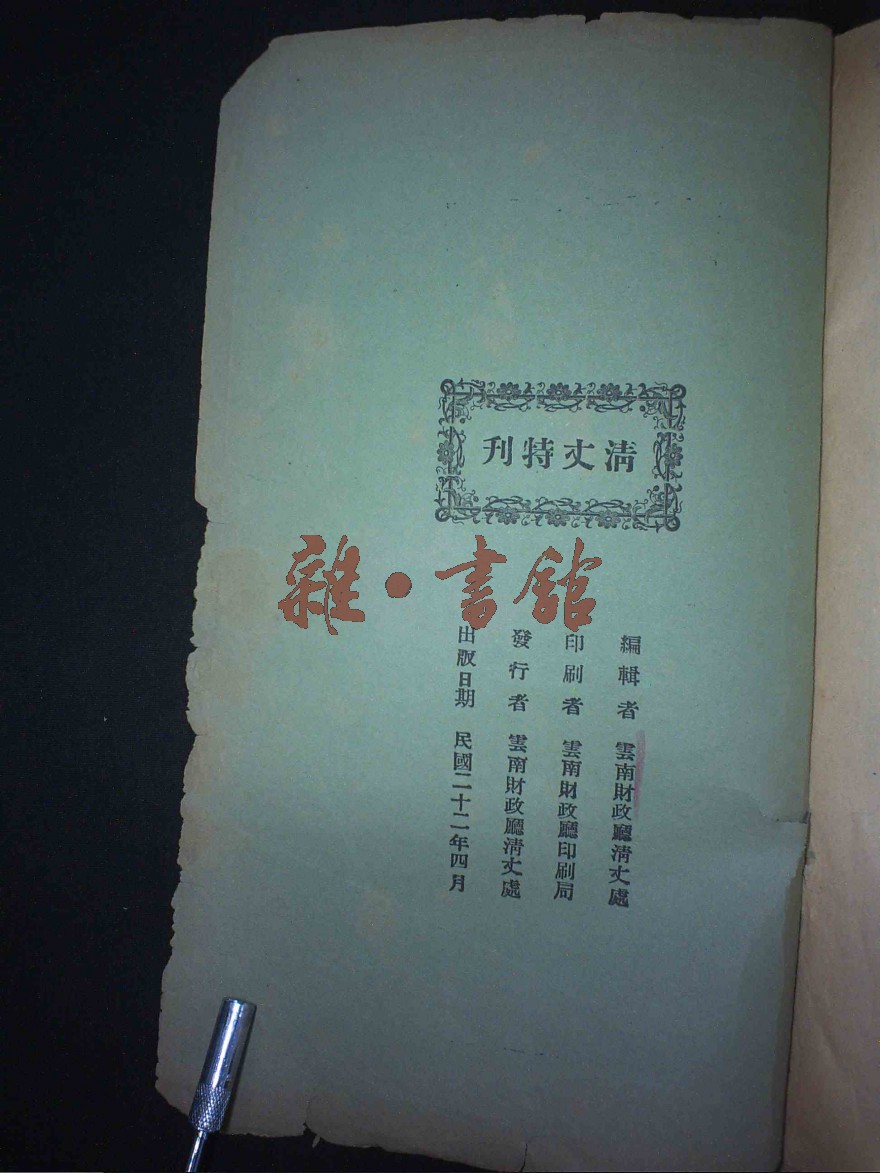 清丈特刊
編輯者 雲南財政廳清丈處
印刷者 雲南財政廳印刷局
發行者 雲南財政廳清丈處
出版日期 民國二十二年四月
雜·書館